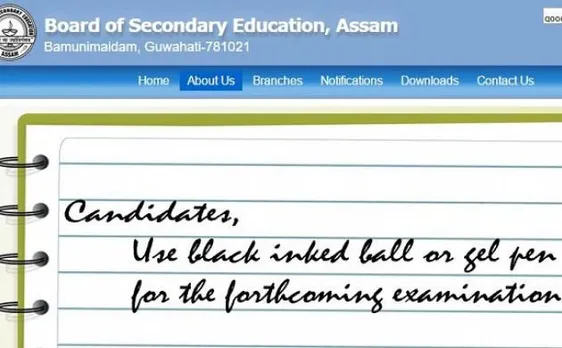 Board of Secondary Education, Assam
Bamunimaidam, Guwahati-781021
Home About Us Branches Notifications Downloads Contact Us
Candidates,
Use black inked ball or gel pen
for the forthcoming examination